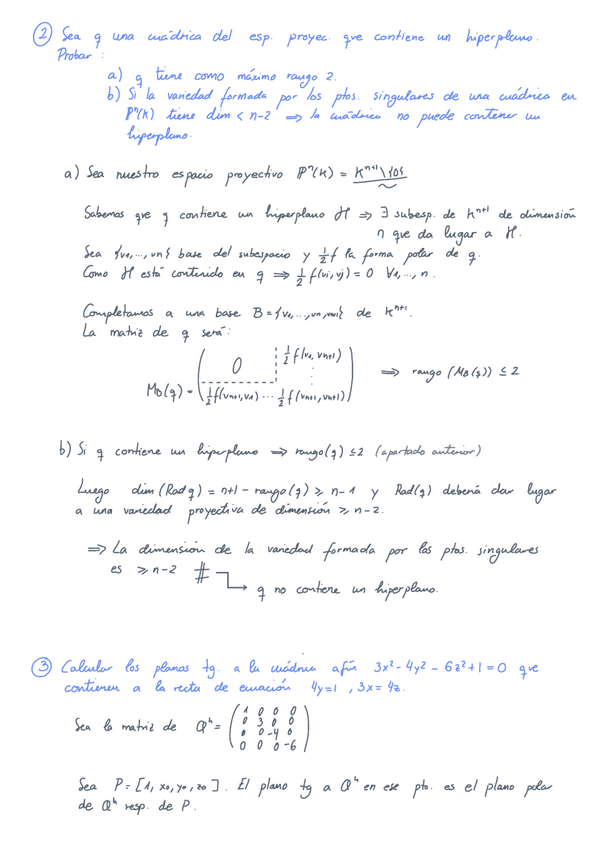 ② Sea q una cuádrica del esp. proyec. que contiene un hiperplano.
Probar:
a) q tiene como máximo rango 2.
b) Si la variedad formada por los ptos. singulares de una cuádrica en
Pⁿ(K) tiene dim < n-2 ⟹ la cuádrica no puede contener un
hiperplano.
a) Sea nuestro espacio proyectivo Pⁿ(K) = Kⁿ⁺¹\{0}
Sabemos que q contiene un hiperplano H ⟹ ∃ subesp. de Kⁿ⁺¹ de dimensión
n que da lugar a H.
Sea {v₁,...,vn} base del subespacio y ½f la forma polar de q.
Como H está contenido en q ⟹ ½ f(vi,vj) = 0 ∀1,..., n.
Completamos a una base B = {v₁,...,vn,vn+1} de Kⁿ⁺¹.
La matriz de q será:
0 ½ f(v₁, vn+1)
MB(q) = ⟹ rango (MB(q)) ≤ 2
½ f(vn+1,v1) ... ½ f(vn+1,vn+1)
b) Si q contiene un hiperplano ⟹ rango(q) ≤2 (apartado anterior)
Luego dim (Rad q) = n+1 - rango(q) ≥ n-1 y Rad(q) deberá dar lugar
a una variedad proyectiva de dimensión ≥ n-2.
⟹ La dimensión de la variedad formada por los ptos. singulares
es ≥ n-2 #
q no contiene un hiperplano.
③ Calcular los planos tg. a la cuádrica afín 3x² - 4y² - 6z² + 1 = 0 que
contienen a la recta de ecuación 4y=1 , 3x = 4z.
1 0 0 0
Sea la matriz de Qʰ = 0 3 0 0
0 0 -4 0
0 0 0 -6
Sea P = [1, x₀, y₀, z₀]. El plano tg a Qʰ en ese pto. es el plano polar
de Qʰ resp. de P.